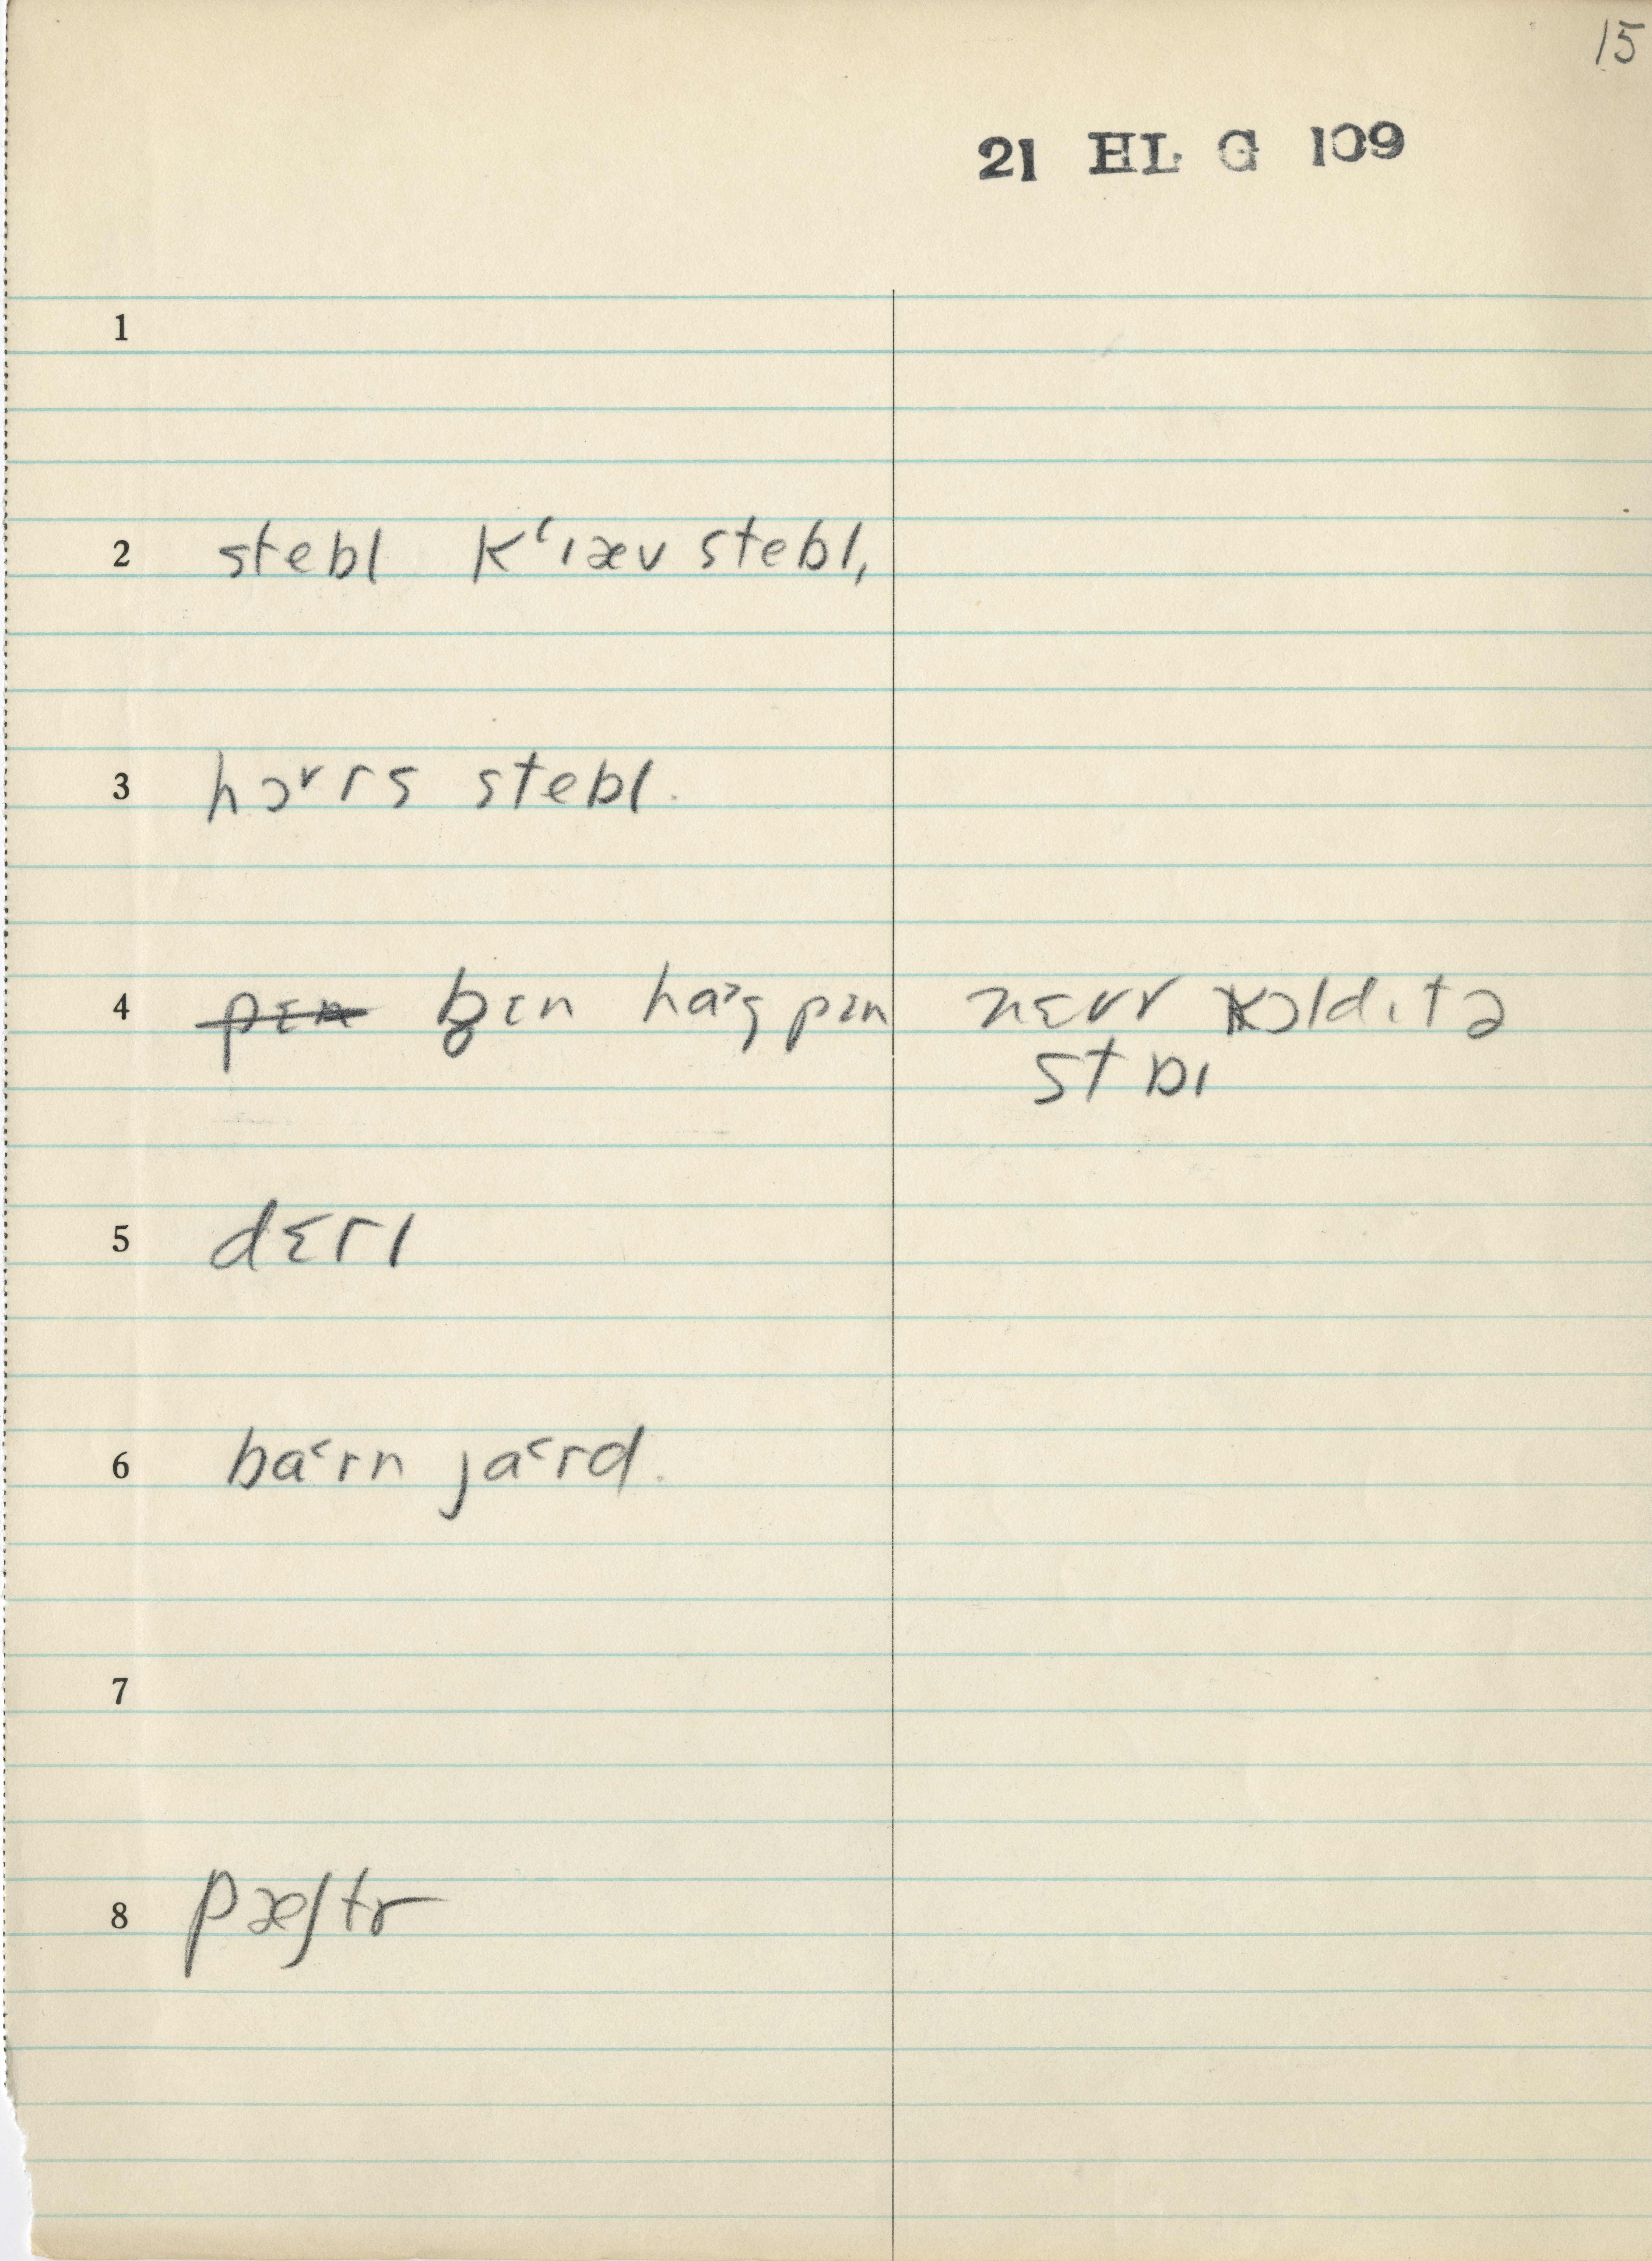 15
21 HL G 109
1
2 stebl kʻɪæv stebl,
3 hɔ˅rs stebl.
4 pɛn b̥ɛn ha˃g̥ pɪn nɛvr kɔld ɪt ə
staɪ
5 dɛrɪ
6 ba˂rn ja˂rd.
7
8 pæʃtr